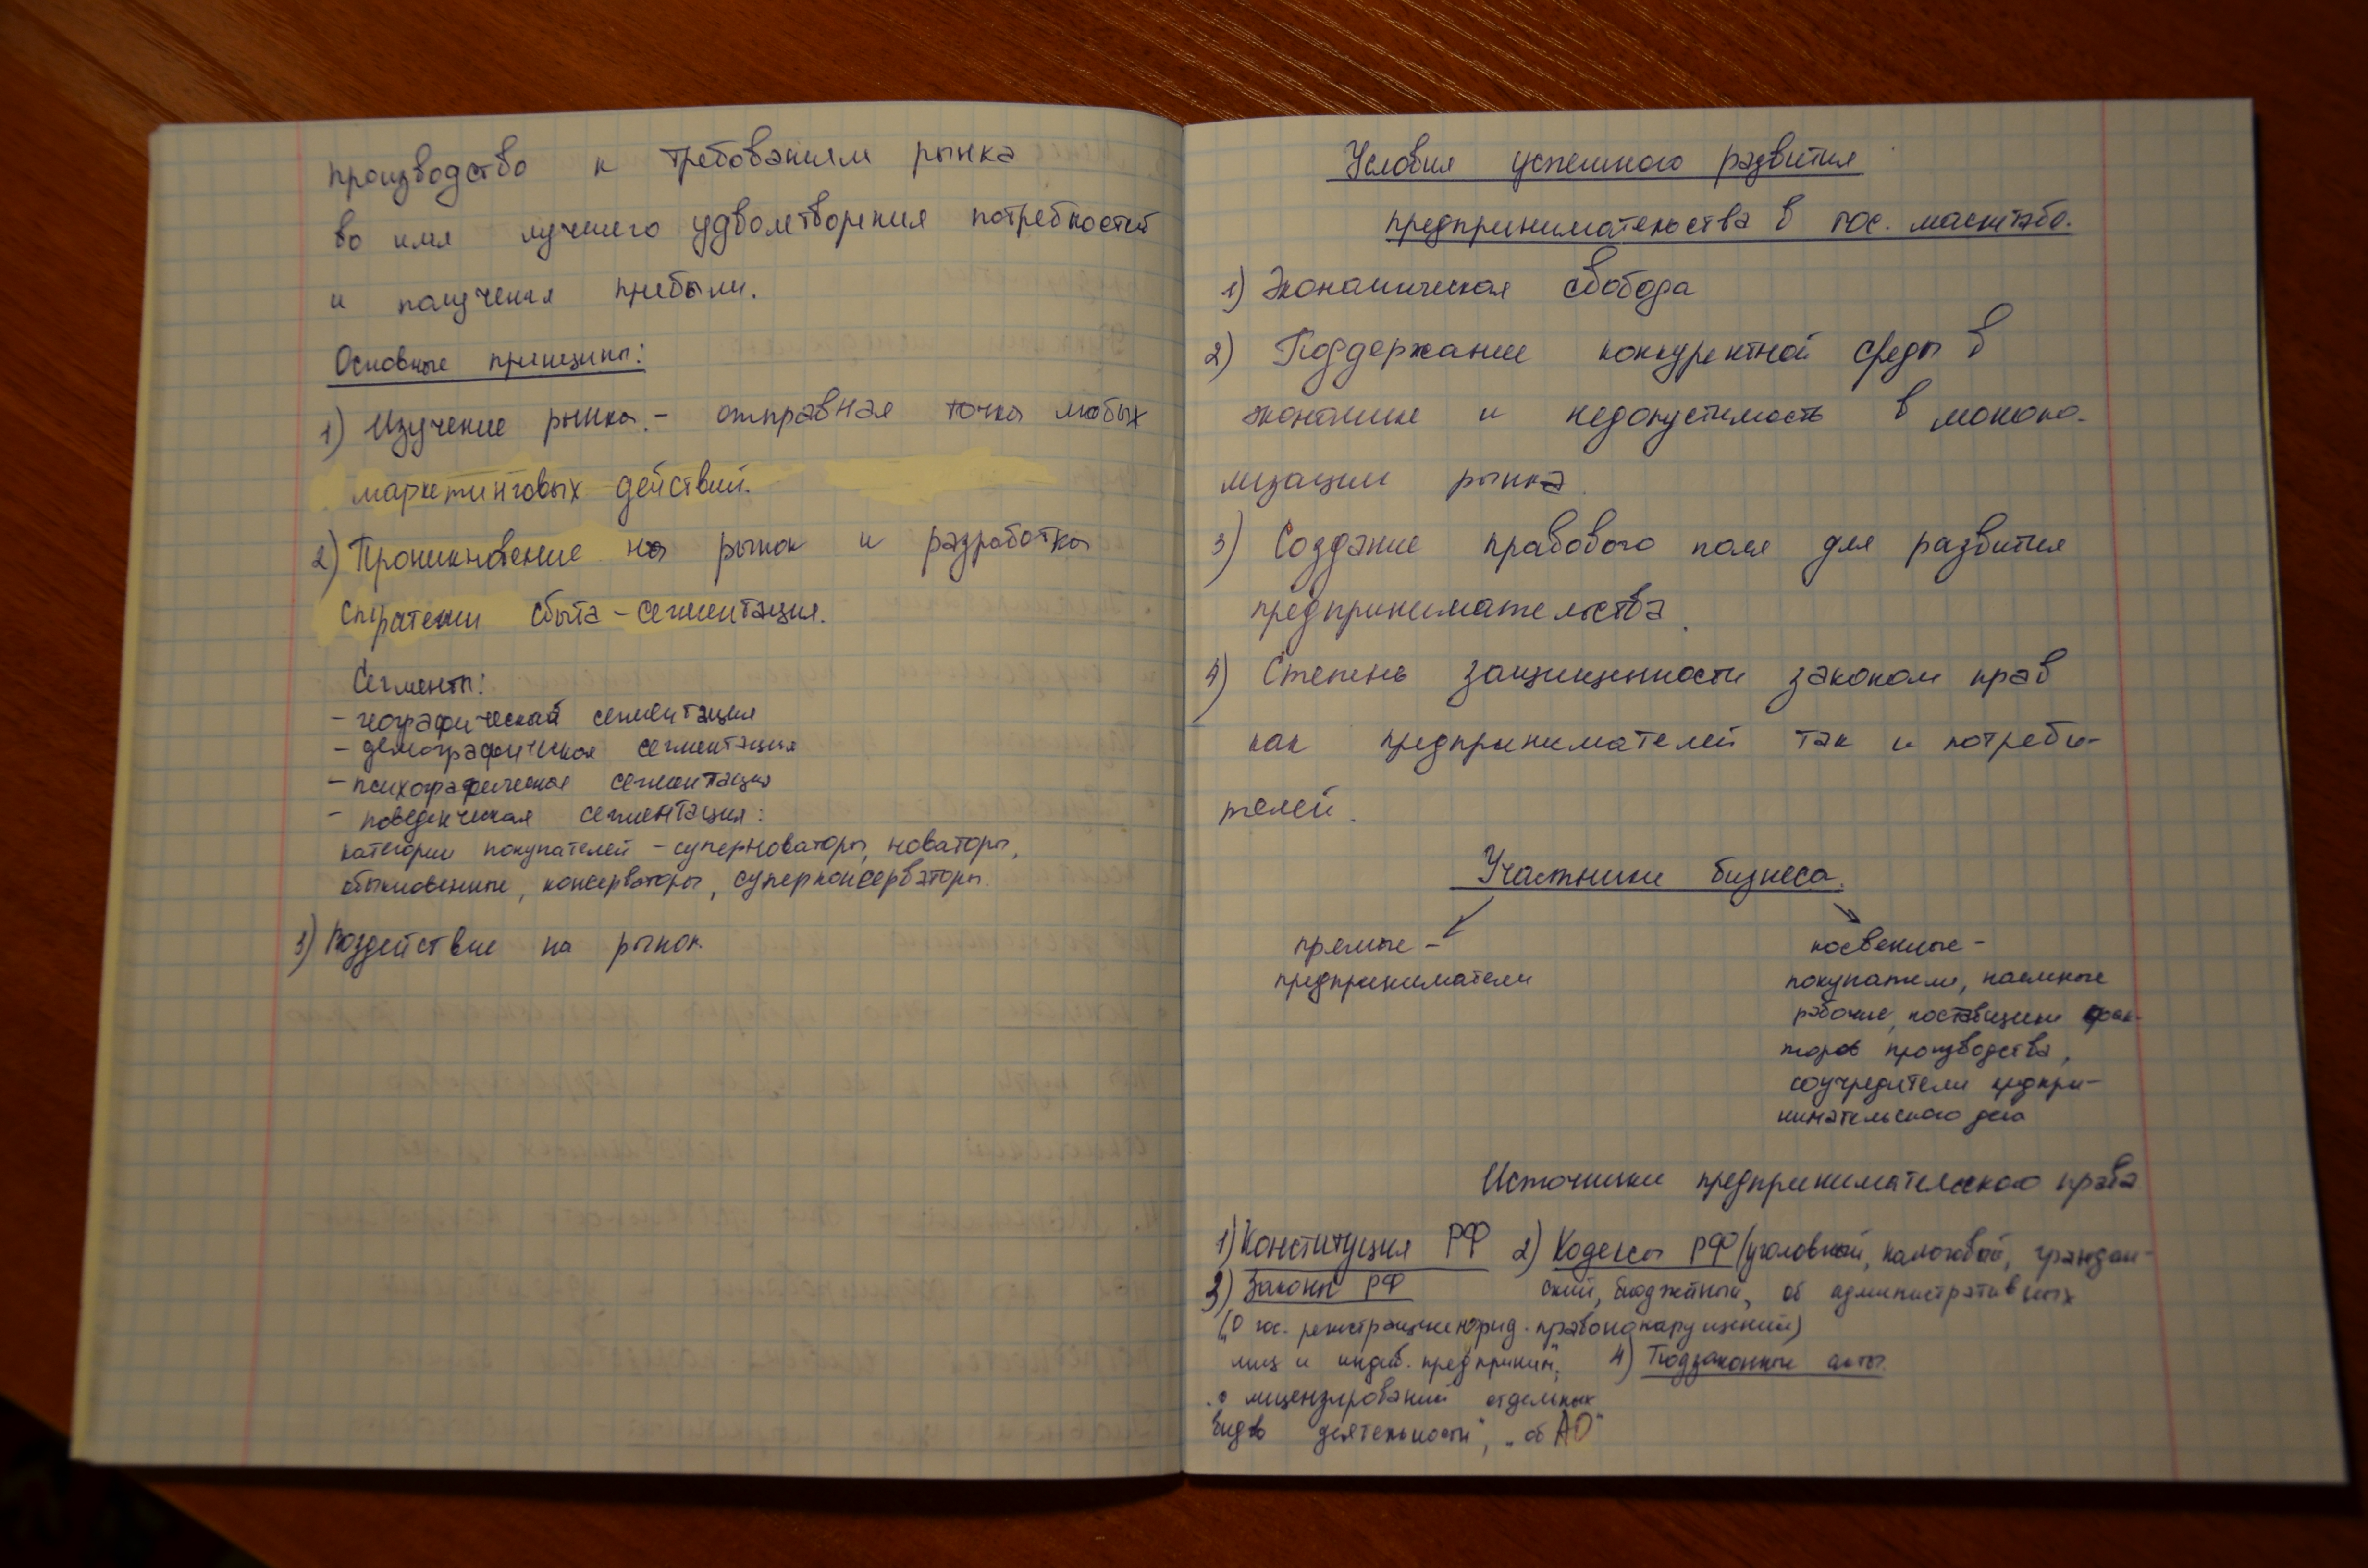 производство к требованиям рынка
во имя лучшего удволетворения потребностей
и получения прибыли.
Основные принципы:
1) Изучение рынка. – отправная точка любых
маркетинговых действий.
2) Проникновение на рынок и разработка
стратегии сбыта – сегментация.
Сегменты:
– географической сегментация
– демографическая сегментация
– психографическая сегментация
– поведенческая сегментация:
категории покупателей – суперноваторы, новаторы,
обыкновенные, консерваторы, суперконсерваторы.
3) Воздействие на рынок.
Условия успешного развития
предпринимательства в гос. масштабе.
1) Экономическая свобода
2) Поддержание конкурентной среды в
экономике и недопустимость в монопо-
лизации рынка.
3) Создание правового поля для развития
предпринимательства.
4) Степень защищенности законом прав
как предпринимателей так и потреби-
телей.
Участники бизнеса.
прямые –
предприниматели
косвенные –
покупатели, наемные
рабочие, поставщики фак-
торов производства,
соучредители предпри-
нимательского дела
Источники предпринимательского права
1) Конституция РФ 2) Кодексы РФ (уголовный, налоговый, граждан-
3) Законы РФ ский, бюджетный, об административных
(„О гос. регистрации юрид. правонарушений)
лиц и индив. предприним", 4) Подзаконные акты.
„о лицензировании отдельных
видов деятельности", „об АО"